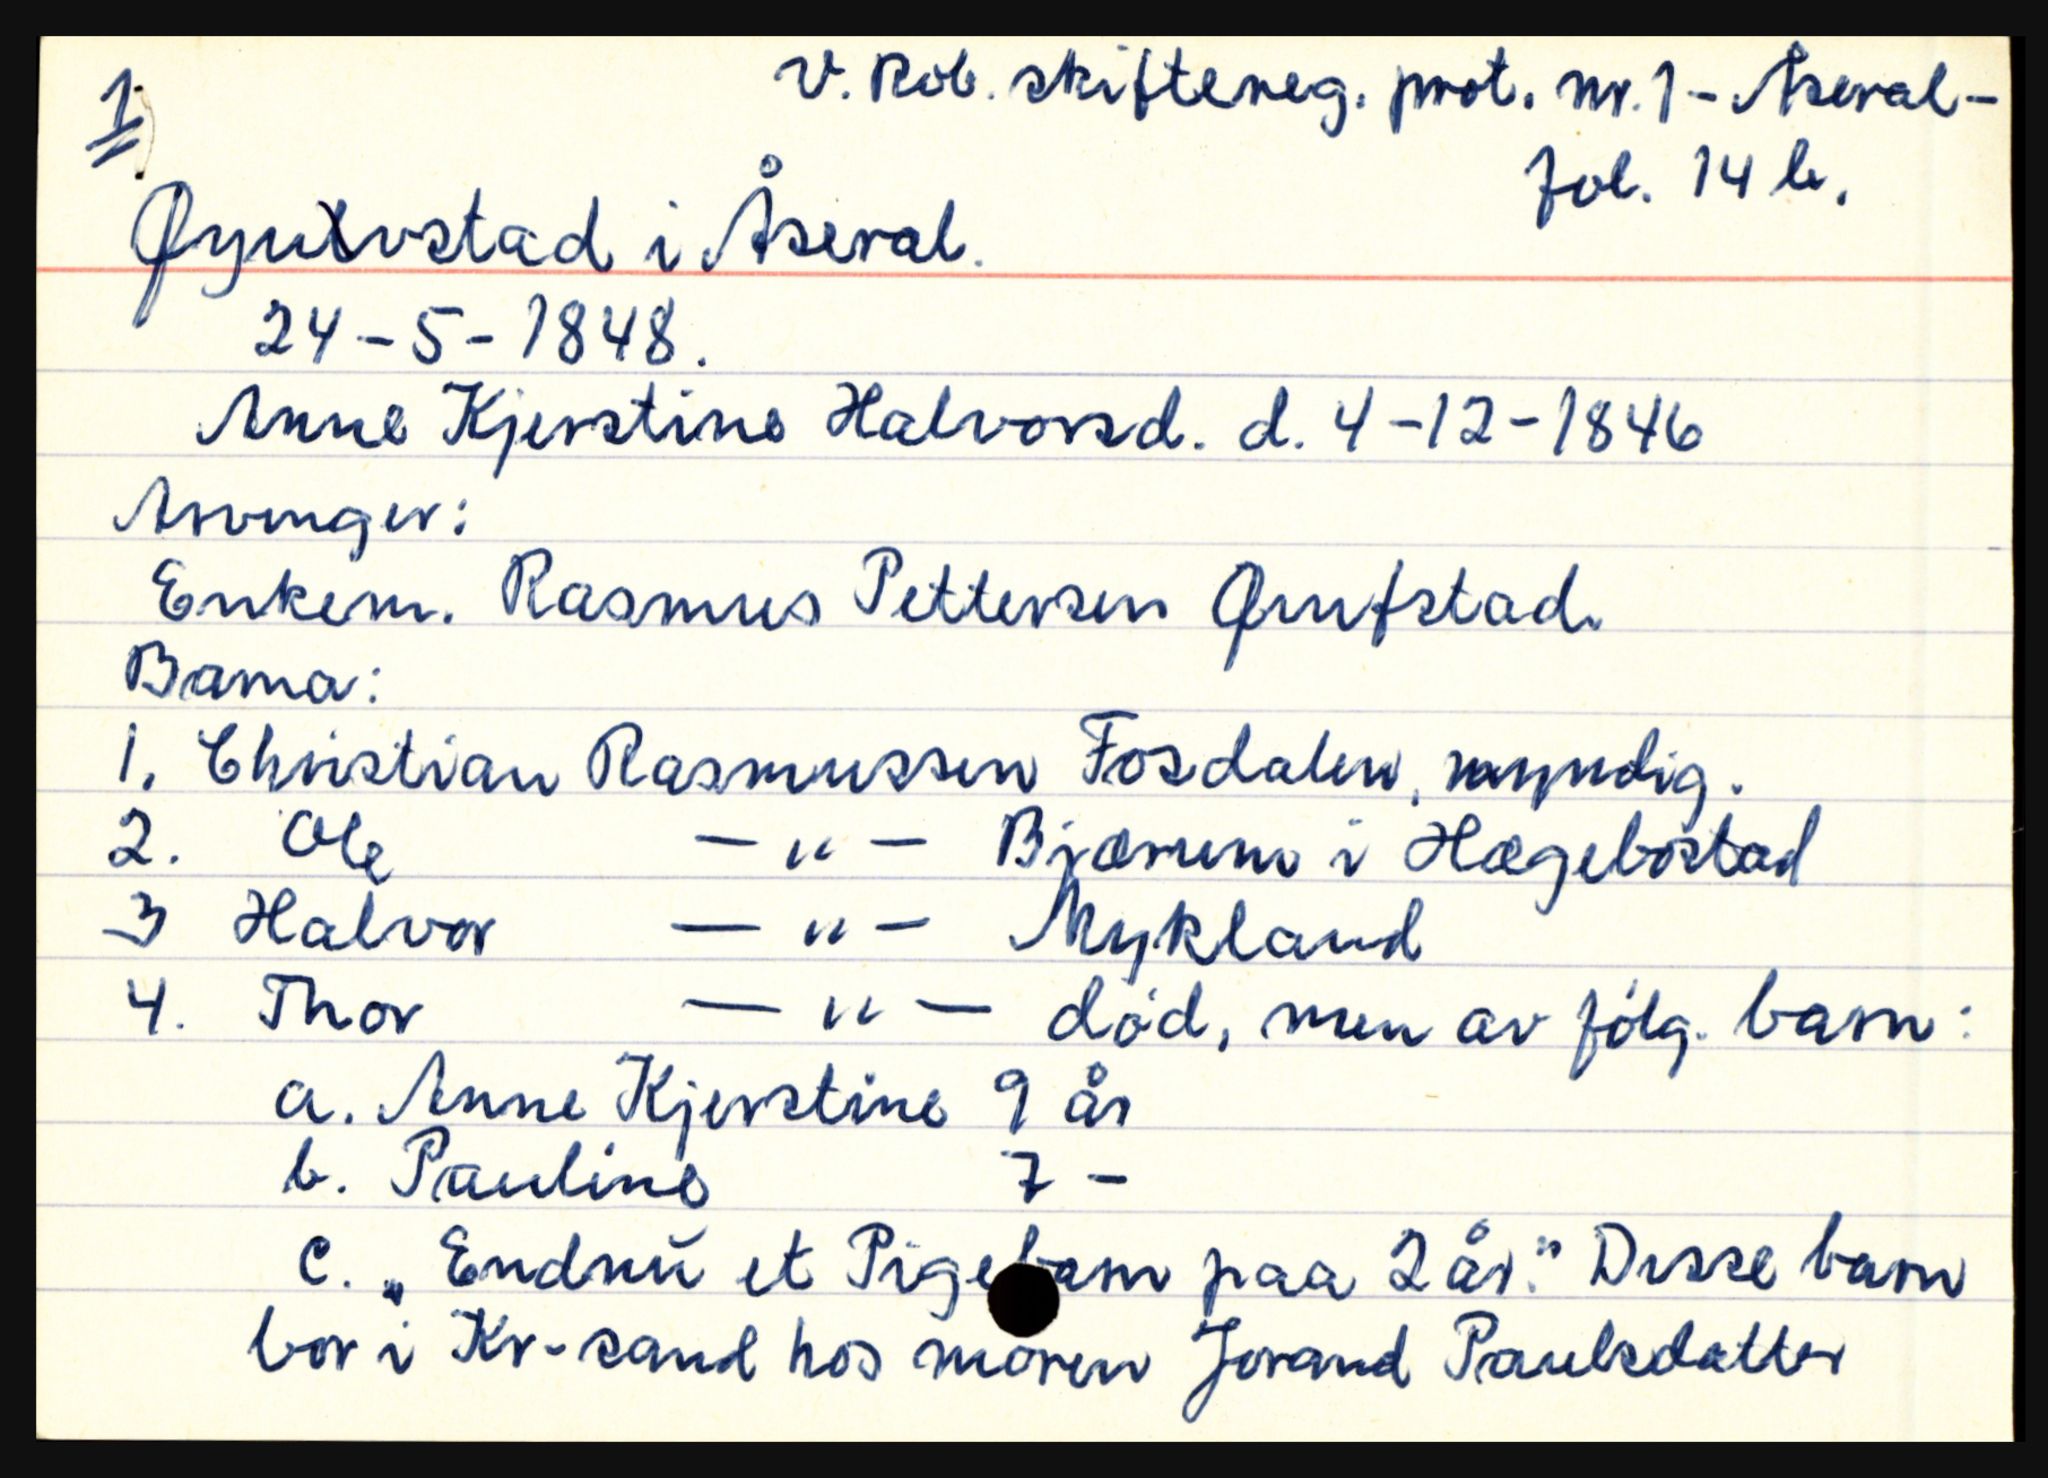 1)
V. Rob. skiftereg. prot. nr. 1 - Åseral -
fol. 14 b.
Øyuvstad i Åseral.
24-5-1848.
Anne Kjerstine Halvorsd. d. 4-12-1846
Arvinger:
Enkem. Rasmus Pettersen Øiufstad.
Barna:
1. Christian Rasmussen Fosdalen, myndig.
2. Ole — " — Bjærum i Hægebostad
3 Halvor — " — Mykland
4. Thor — " — død, men av følg. barn:
a. Anne Kjerstine 9 år
b. Pauline 7 -
c. „Endnu et Pigebarn paa 2 år." Disse barn
bor i Kr-sand hos moren Jorand Paulsdatter